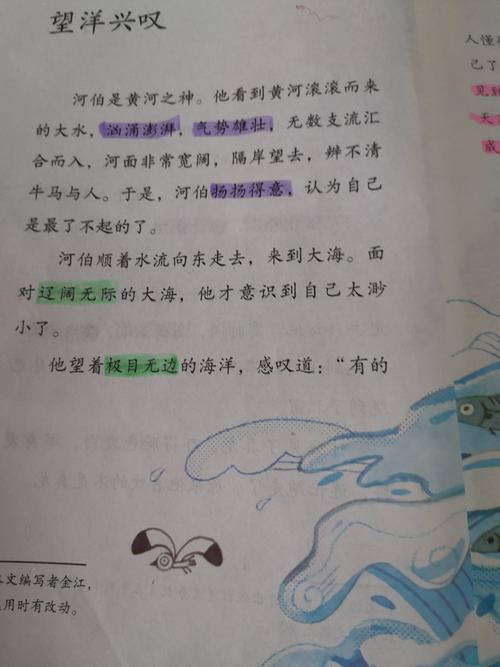 望洋兴叹
河伯是黄河之神。他看到黄河滚滚而来
的大水，汹涌澎湃，气势雄壮，无数支流汇
合而入，河面非常宽阔，隔岸望去，辨不清
牛马与人。于是，河伯扬扬得意，认为自己
是最了不起的了。
河伯顺着水流向东走去，来到大海。面
对辽阔无际的大海，他才意识到自己太渺
小了。
他望着极目无边的海洋，感叹道：“有的
文编写者金江，
用时有改动。
人懂得
己了
见到